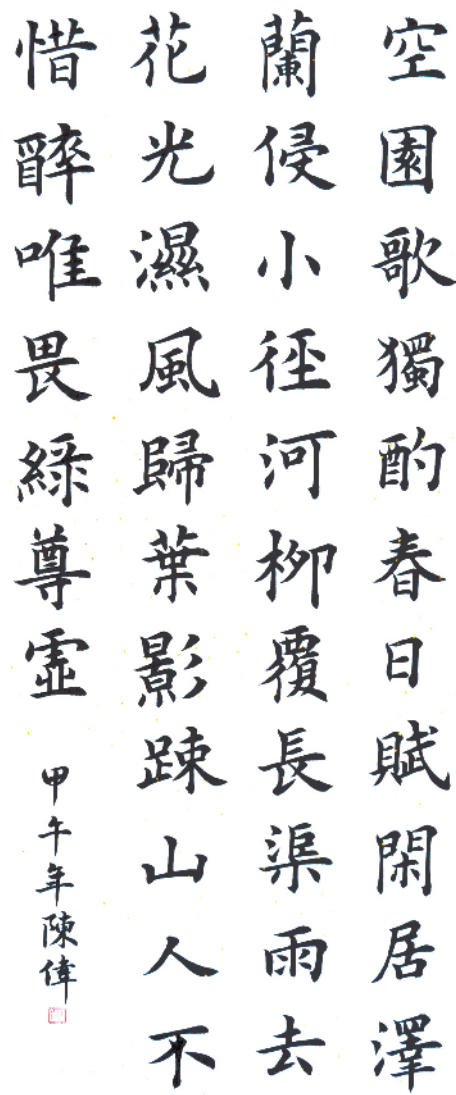 空園歌獨酌春日賦閑居澤
蘭侵小徑河柳覆長渠雨去
花光濕風歸葉影踈山人不
惜醉唯畏綠尊虛
甲午年陳偉